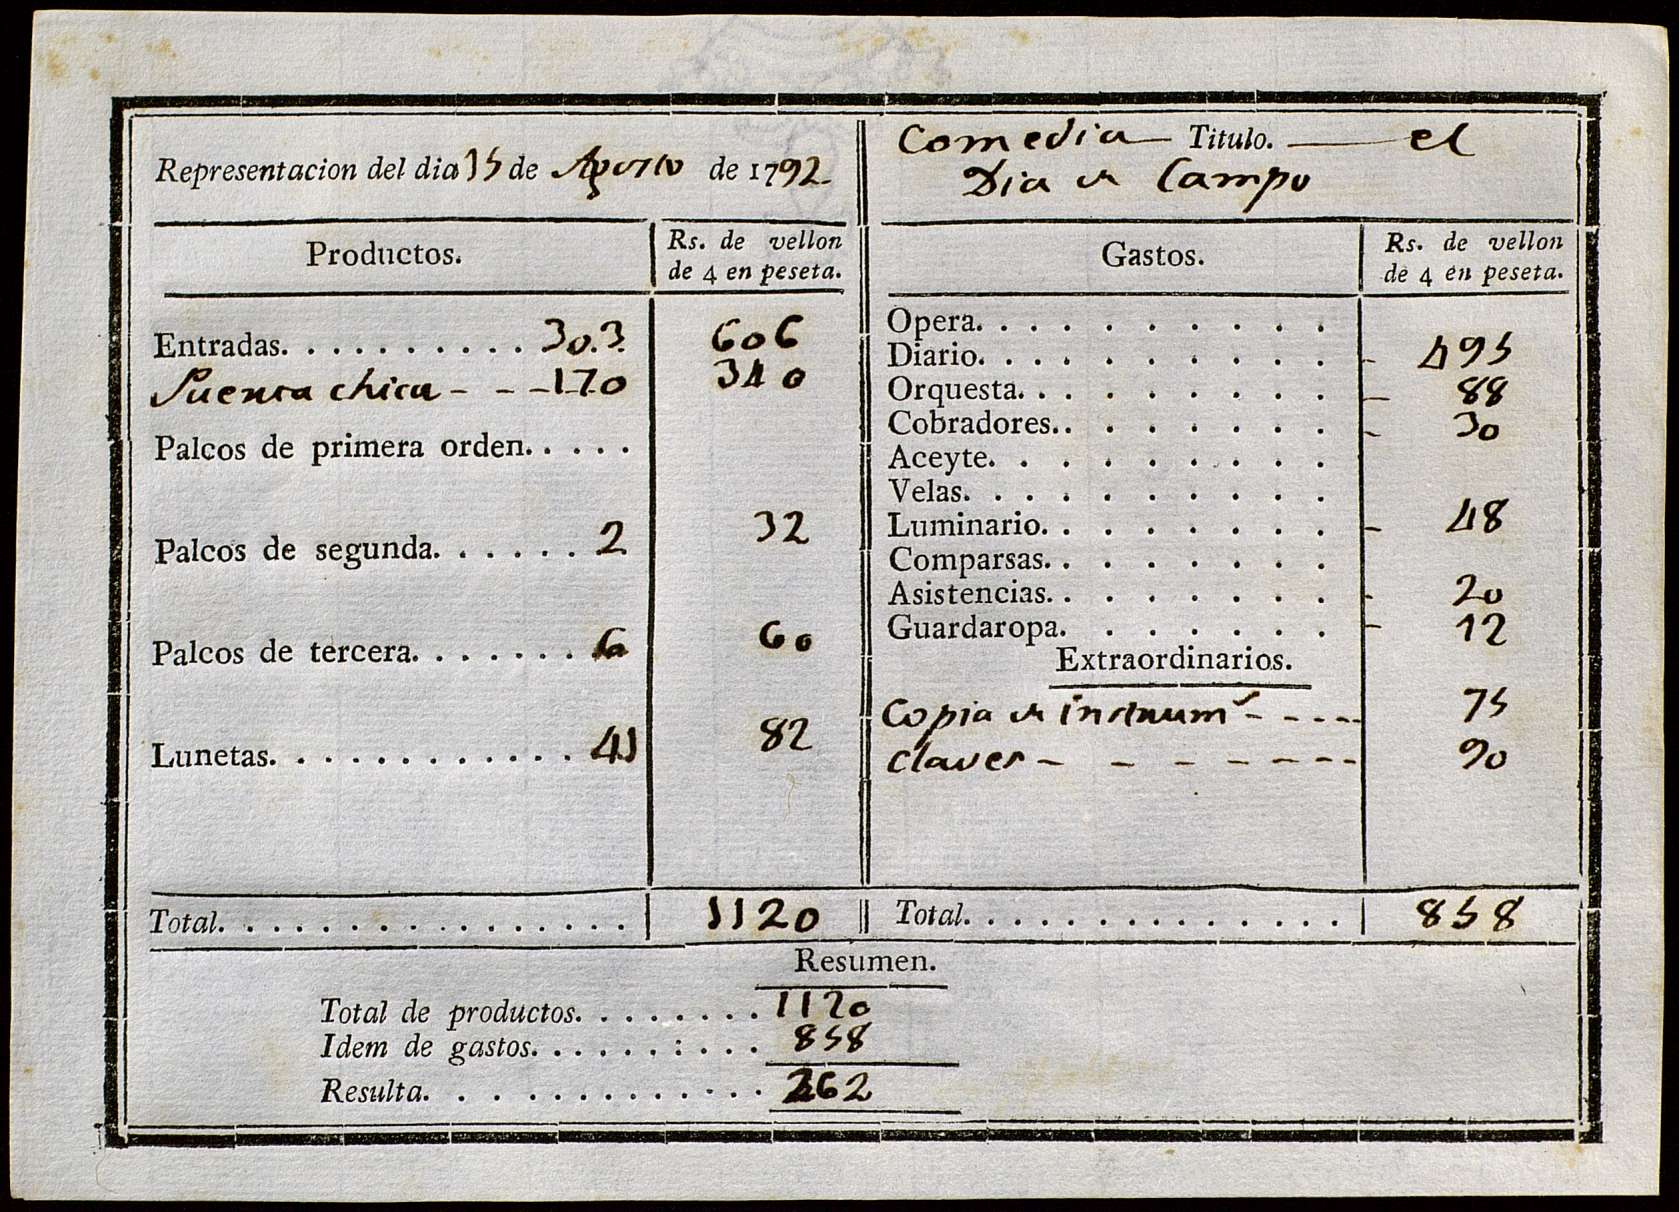 Representacion del dia 15 de Agosto de 1792.
Comedia Titulo. el
Dia de Campo
Productos. Rs. de vellon
de 4 en peseta.
Entradas. . . . . . . . . . 303. 606
Puerta chica - - - 170 340
Palcos de primera orden. . . . .
Palcos de segunda. . . . . . 2 32
Palcos de tercera. . . . . . . 6 60
Lunetas. . . . . . . . . . . . 41 82
Total. . . . . . . . . . . . . . . . 1120
Gastos. Rs. de vellon
de 4 en peseta.
Opera. . . . . . . . . .
Diario. . . . . . . . . . - 495
Orquesta. . . . . . . . . - 88
Cobradores. . . . . . . . - 30
Aceyte. . . . . . . . .
Velas. . . . . . . . . .
Luminario. . . . . . . . - 48
Comparsas. . . . . . . .
Asistencias. . . . . . . . - 20
Guardaropa. . . . . . . - 12
Extraordinarios.
Copia de instrum.s - - - - - 75
claves - - - - - - - - 90
Total. . . . . . . . . . . . . . . 858
Resumen.
Total de productos. . . . . . . . 1120
Idem de gastos. . . . . . : . . . 858
Resulta. . . . . . . . . . . . . 262